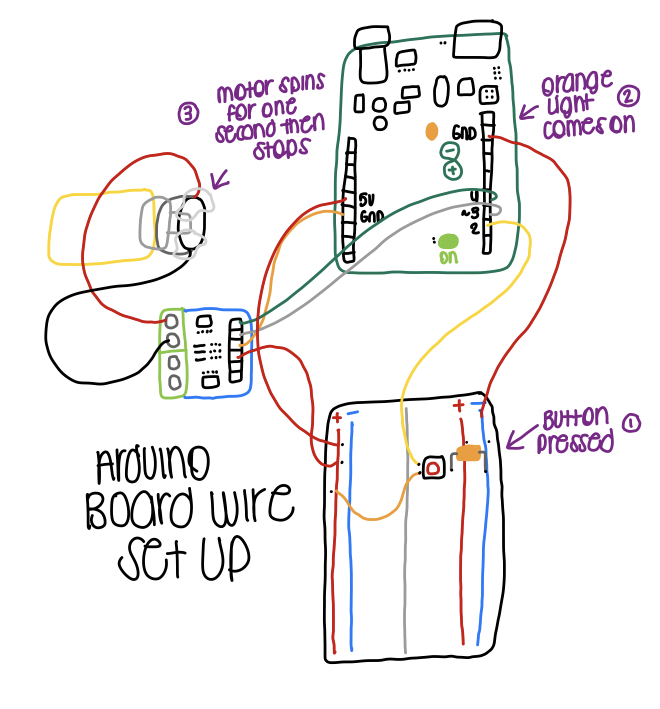 ③ motor spins
for one
second then
stops
orange
light ②
comes on
GND
-
+
5V
GND
4
~3
2
ON
+ -
+ -
Button ①
pressed
Arduino
Board wire
set up